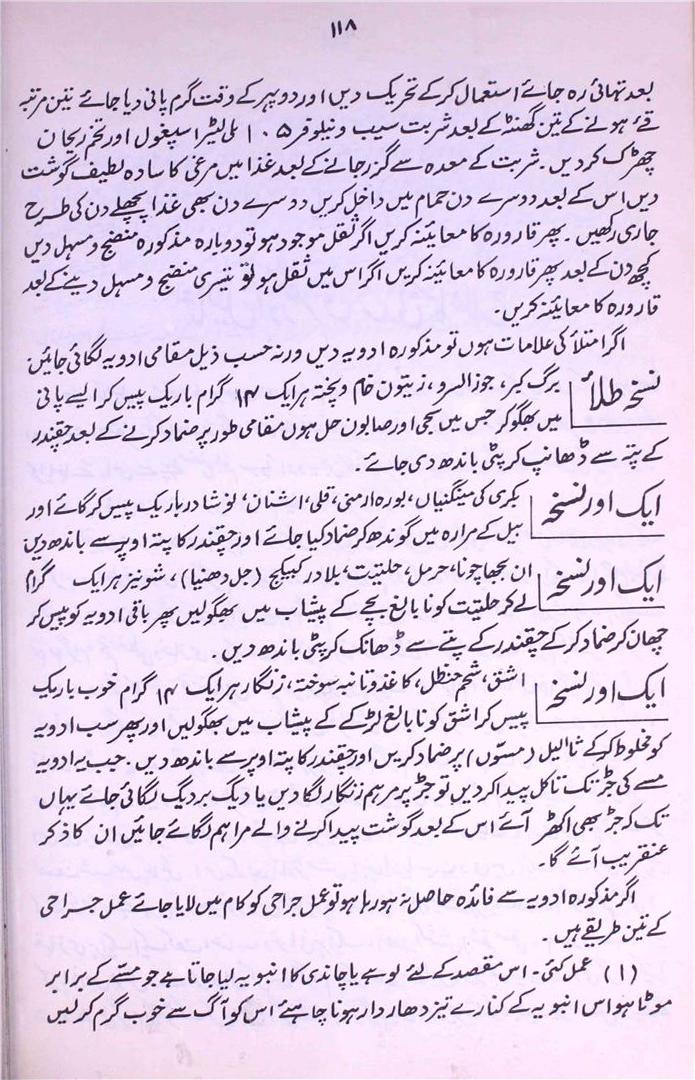 ۱۱۸
بعد تہائی رہ جائے استعمال کرکے تحریک دیں اور دوپہر کے وقت گرم پانی دیا جائے تین مرتبہ
قے ہونے کے تین گھنٹہ کے بعد شربت سیب و نیلوفر ۱۰۵ ملی لیٹر اسپغول اور تخم ریحان
چھڑک کر دیں۔ شربت کے معدہ سے گزر جانے کے بعد غذا میں مرغی کا سادہ لطیف گوشت
دیں اس کے بعد دوسرے دن حمام میں داخل کریں دوسرے دن بھی غذا پچھلے دن کی طرح
جاری رکھیں۔ پھر قارورہ کا معائینہ کریں اگر ثفل موجود ہو تو دوبارہ مذکورہ منضج و مسہل دیں
کچھ دن کے بعد پھر قارورہ کا معائینہ کریں اگر اس میں ثفل ہو تو تیسری منضج و مسہل دینے کے بعد
قارورہ کا معائینہ کریں۔
اگر امتلاء کی علامات ہوں تو مذکورہ ادویہ دیں ورنہ حسب ذیل مقامی ادویہ لگائی جائیں
نسخہ طلاء برگ کبر، جوز السرو، زیتون خام و پختہ ہر ایک ۱۴ گرام باریک پیس کر ایسے پانی
میں بھگو کر جس میں سجی اور صابون حل ہوں مقامی طور پر ضماد کرنے کے بعد چقندر
کے پتہ سے ڈھانپ کر پٹی باندھ دی جائے۔
ایک اور نسخہ بکری کی مینگنیاں، بورہ ارمنی، قلی، اشنان، نوشادر باریک پیس کر گائے اور
بیل کے مرارہ میں گوندھ کر ضماد کیا جائے اور چقندر کا پتہ اوپر سے باندھ دیں
ایک اور نسخہ ان بجھا چونا، حرمل، حلیتت، بلادر کبیکج (جل دھنیا)، شونیز ہر ایک گرام
لے کر حلیتت کو نابالغ بچے کے پیشاب میں بھگولیں پھر باقی ادویہ کو پیس کر
چھان کر ضماد کرکے چقندر کے پتے سے ڈھانک کر پٹی باندھ دیں۔
ایک اور نسخہ اشق، شحم حنظل، کاغذ ونانیہ سوختہ، زنگار ہر ایک ۱۴ گرام خوب باریک
پیس کر اشق کو نابالغ لڑکے کے پیشاب میں بھگولیں اور پھر سب ادویہ
کو مخلوط کرکے ثآلیل (مسّوں) پر ضماد کریں اور چقندر کا پتہ اوپر سے باندھ دیں۔ جب یہ ادویہ
مسے کی جڑ تک تاکل پیدا کردیں تو جڑ پر مرہم زنگار لگا دیں یا دیگ بردیگ لگائی جائے یہاں
تک کہ جڑ بھی اکھڑ آئے اس کے بعد گوشت پیدا کرنے والے مراہم لگائے جائیں ان کا ذکر
عنقریب آئے گا۔
اگر مذکورہ ادویہ سے فائدہ حاصل نہ ہو رہا ہو تو عمل جراحی کو کام میں لایا جائے عمل جراحی
کے تین طریقے ہیں۔
(۱) عمل کئی۔ اس مقصد کے لئے لوہے یا چاندی کا انبوبہ لیا جاتا ہے جو مسّے کے برابر
موٹا ہو اس انبوبہ کے کنارے تیز دھار دار ہونا چاہئے اس کو آگ سے خوب گرم کرلیں